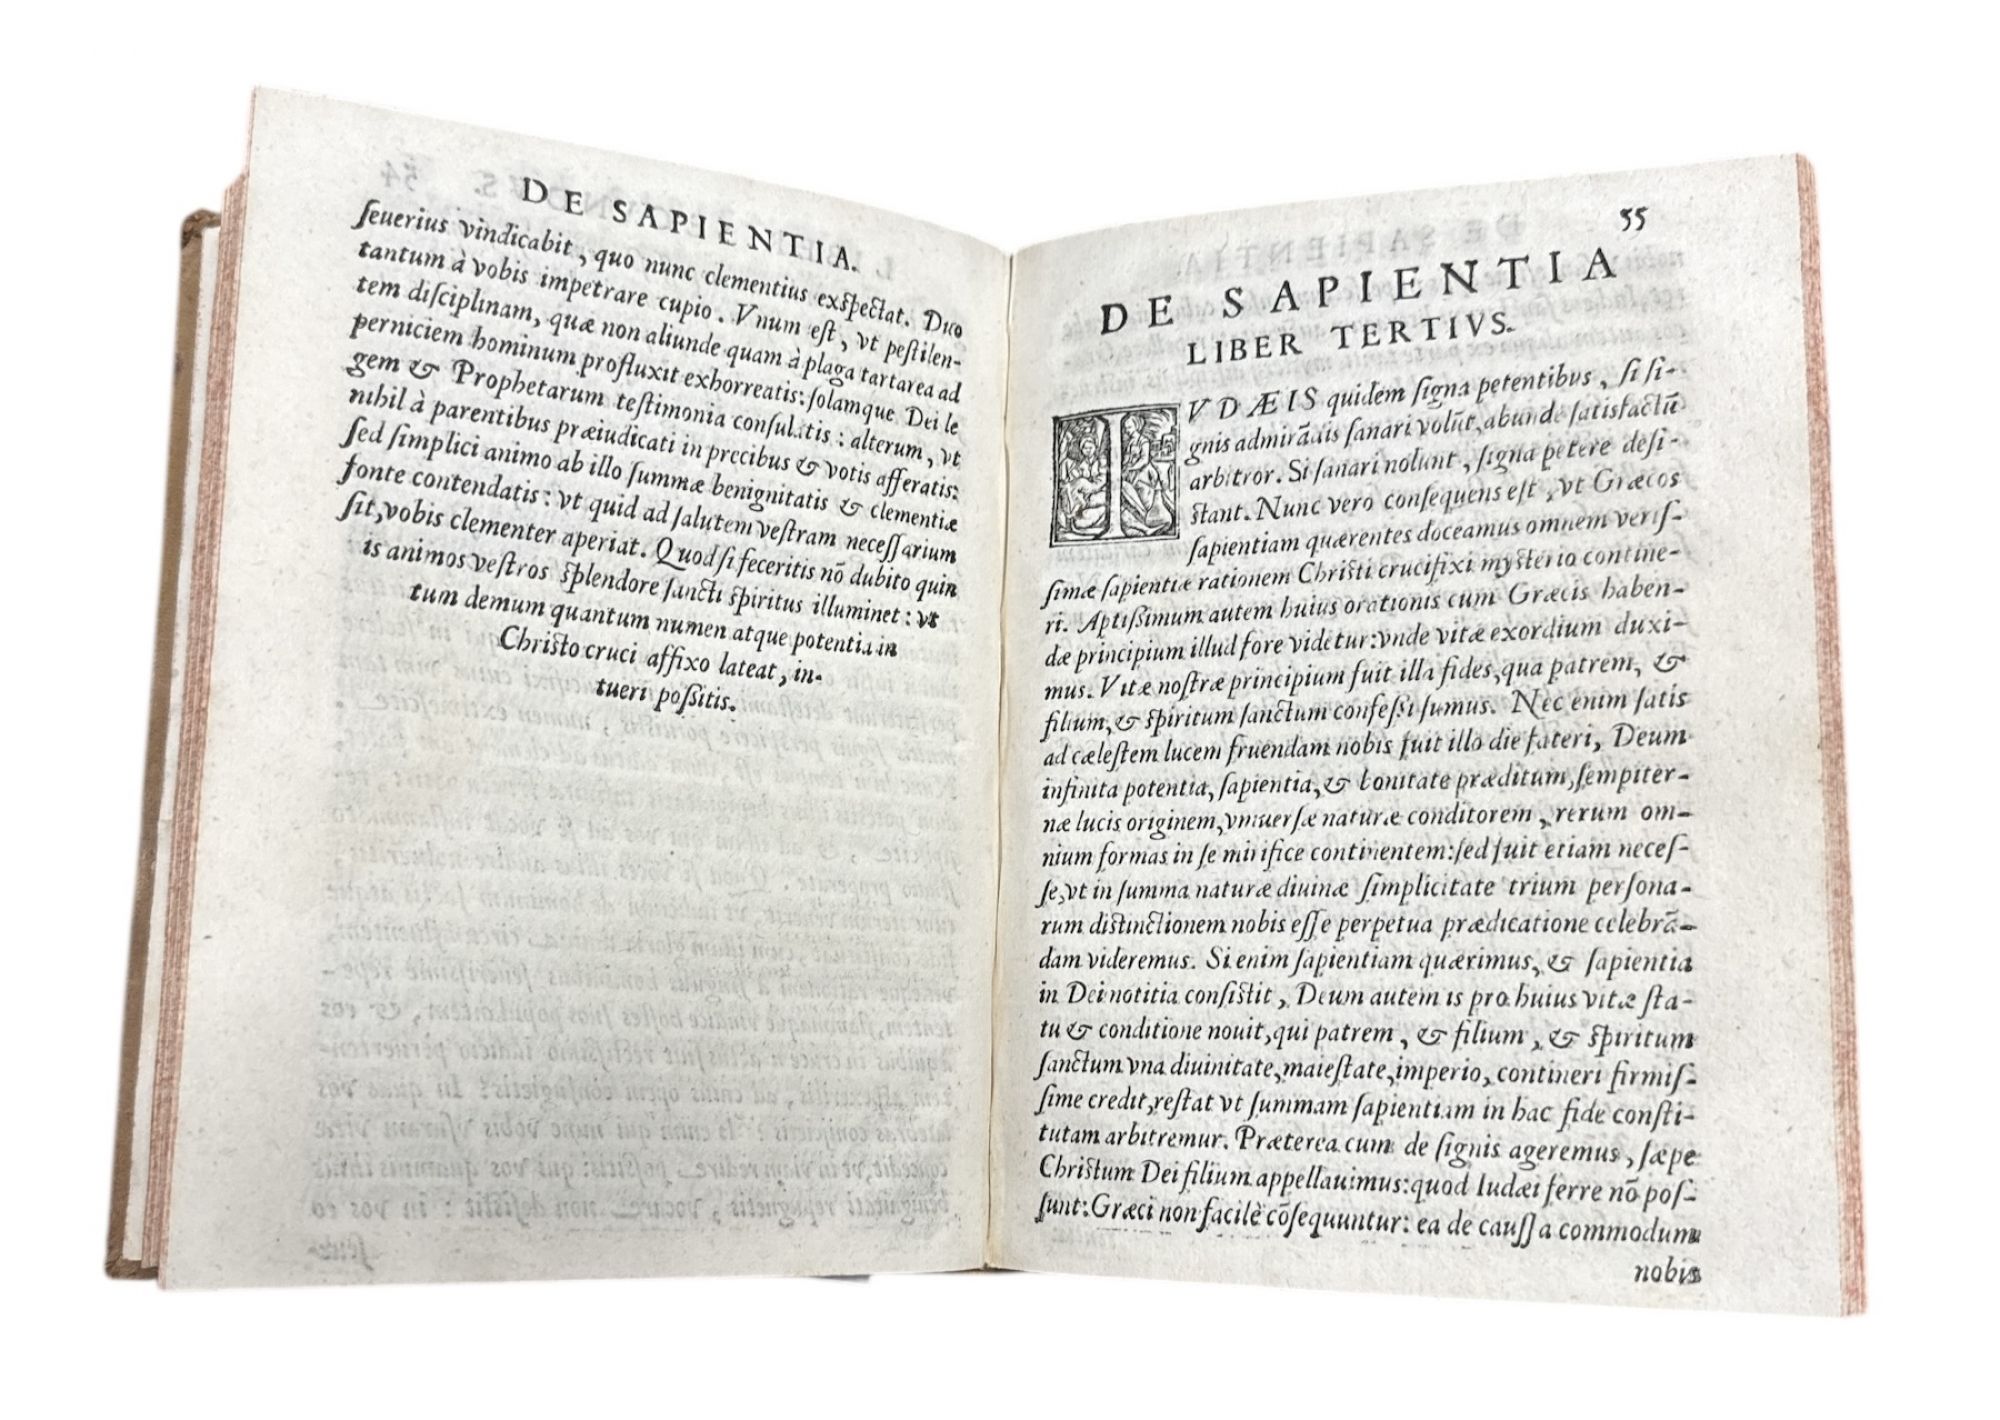 DE SAPIENTIA.
ſeuerius vindicabit, quo nunc clementius exſpectat. Duo
tantum à vobis impetrare cupio. Vnum eſt, vt peſtilen-
tem diſciplinam, quæ non aliunde quam à plaga tartarea ad
perniciem hominum profluxit exhorreatis: ſolamque Dei le
gem & Prophetarum teſtimonia conſulatis: alterum, vt
nihil à parentibus præiudicati in precibus & votis afferatis:
ſed ſimplici animo ab illo ſummæ benignitatis & clementiæ
fonte contendatis: vt quid ad ſalutem veſtram neceſſarium
ſit, vobis clementer aperiat. Quod ſi feceritis nõ dubito quin
is animos veſtros ſplendore ſancti ſpiritus illuminet: vt
tum demum quantum numen atque potentia in
Chriſto cruci affixo lateat, in-
tueri poſſitis.
55
DE SAPIENTIA
LIBER TERTIVS.
IVDÆIS quidem ſigna petentibus, ſi ſi-
gnis admirãdis ſanari volũt, abunde ſatisfactũ
arbitror. Si ſanari nolunt, ſigna petere deſi-
ſtant. Nunc vero conſequens eſt, vt Græcos
ſapientiam quærentes doceamus omnem veriſ-
ſimæ ſapientiæ rationem Chriſti crucifixi myſterio contine-
ri. Aptiſſimum autem huius orationis cum Græcis haben-
dæ principium illud fore videtur: vnde vitæ exordium duxi-
mus. Vitæ noſtræ principium fuit illa fides, qua patrem, &
filium, & ſpiritum ſanctum confeſſi ſumus. Nec enim ſatis
ad cæleſtem lucem fruendam nobis fuit illo die fateri, Deum
infinita potentia, ſapientia, & bonitate præditum, ſempiter-
næ lucis originem, vniuerſæ naturæ conditorem, rerum om-
nium formas in ſe mirifice continentem: ſed fuit etiam neceſ-
ſe, vt in ſumma naturæ diuinæ ſimplicitate trium perſona-
rum diſtinctionem nobis eſſe perpetua prædicatione celebrã-
dam videremus. Si enim ſapientiam quærimus, & ſapientia
in Dei notitia conſiſtit, Deum autem is pro huius vitæ ſta-
tu & conditione nouit, qui patrem, & filium, & ſpiritum
ſanctum vna diuinitate, maieſtate, imperio, contineri firmiſ-
ſime credit, reſtat vt ſummam ſapientiam in hac fide conſti-
tutam arbitremur. Præterea cum de ſignis ageremus, ſæpe
Chriſtum Dei filium appellauimus: quod Iudæi ferre nõ poſ-
ſunt: Græci non facilè cõſequuntur: ea de cauſſa commodum
nobis